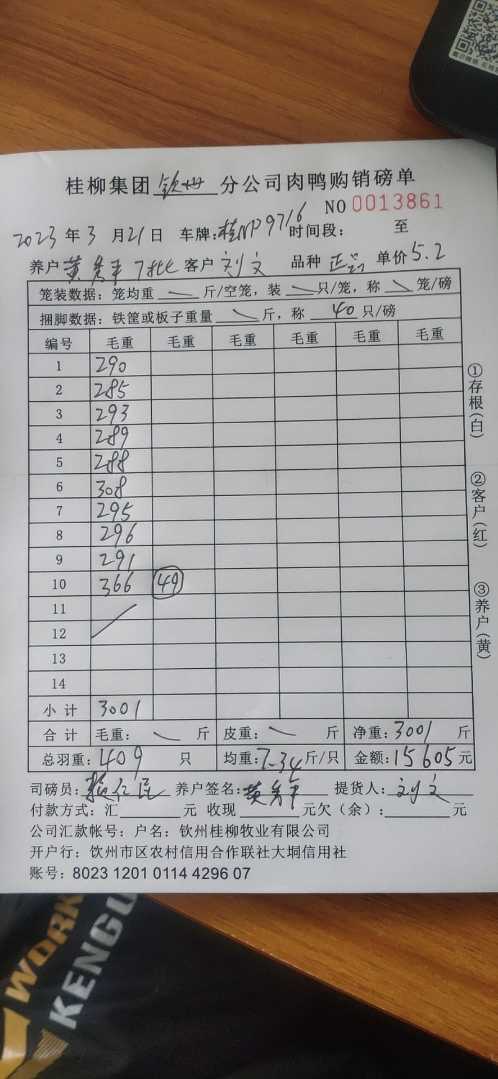 桂柳集团 钦州 分公司肉鸭购销磅单
NO 0013861
2023 年 3 月 21 日 车牌: 桂NP9716 时间段: 至
养户 黄 7批 客户 刘文 品种 正 单价 5.2
笼装数据: 笼均重 斤/空笼, 装 只/笼, 称 笼/磅
捆脚数据: 铁筐或板子重量 斤, 称 40 只/磅
编号 毛重 毛重 毛重 毛重 毛重 毛重
1 290
2 285
3 293
4 289
5 288
6 308
7 295
8 296
9 291
10 366 49
11
12
13
14
小计 3001
合计 毛重: 斤 皮重: 斤 净重: 3001 斤
总羽重: 409 只 均重: 7.34 斤/只 金额: 15605 元
司磅员: 养户签名: 黄 提货人: 刘文
付款方式: 汇 元 收现 元欠(余): 元
公司汇款帐号: 户名: 钦州桂柳牧业有限公司
开户行: 钦州市区农村信用合作联社大垌信用社
账号: 8023 1201 0114 4296 07
①存根(白)
②客户(红)
③养户(黄)
WORK
KENGU